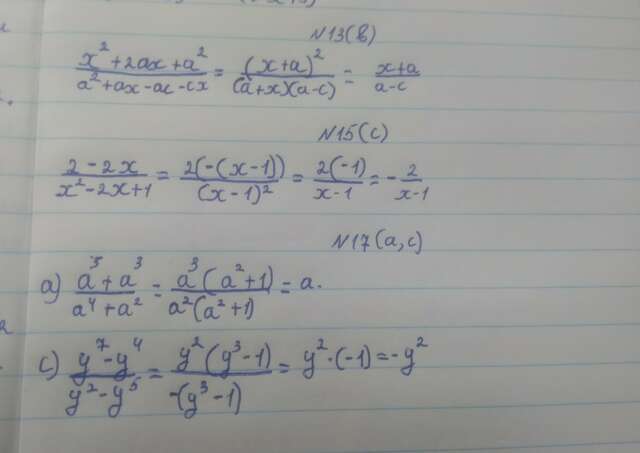 N13(b)
x² + 2ax + a² / a² + ax - ac - cx = (x+a)² / (a+x)(a-c) = x+a / a-c
N15(c)
2 - 2x / x² - 2x + 1 = 2(-(x-1)) / (x-1)² = 2(-1) / x-1 = - 2 / x-1
N17(a,c)
a) a⁵ + a³ / a⁴ + a² = a³(a²+1) / a²(a²+1) = a.
c) y⁷ - y⁴ / y² - y⁵ = y²(y³-1) / -(y³-1) = y² · (-1) = -y²